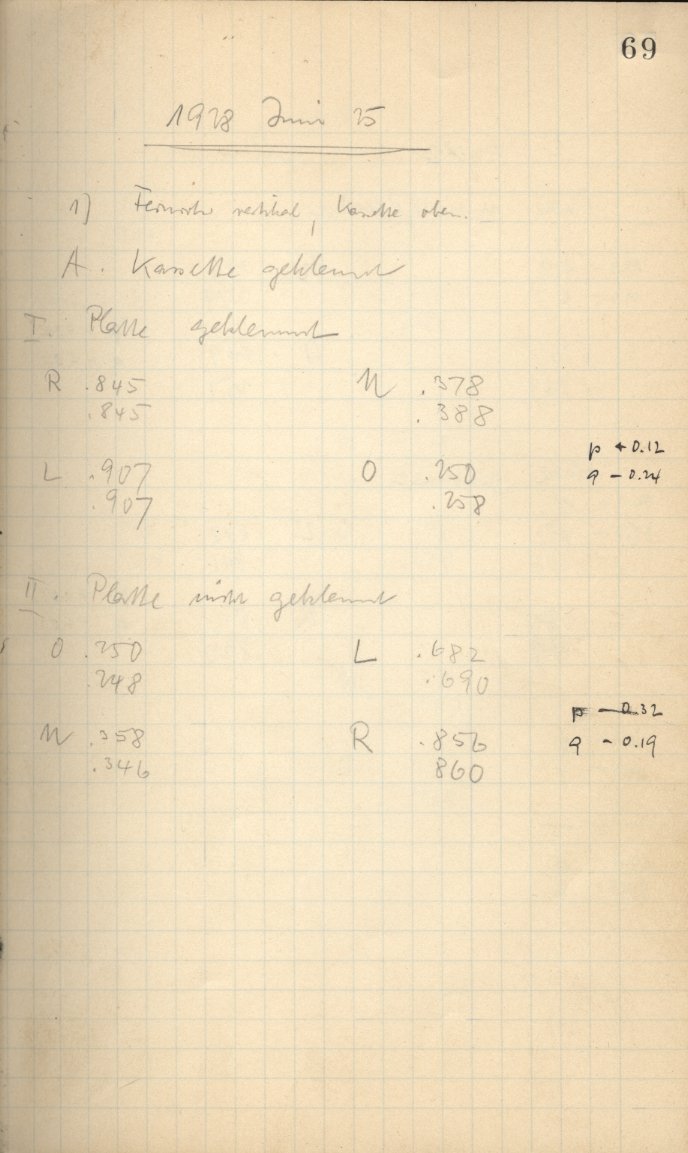 69
1928 Juni 25
1) Fernrohr vertikal, Kassette oben.
A. Kassette geklemmt
I. Platte geklemmt
R .845 N .378
.845 .388
p + 0.12
L .907 O .250 q - 0.24
.907 .258
II. Platte nicht geklemmt
O .250 L .682
.248 .690
p - 0.32
N .358 R .856 q - 0.19
.346 860